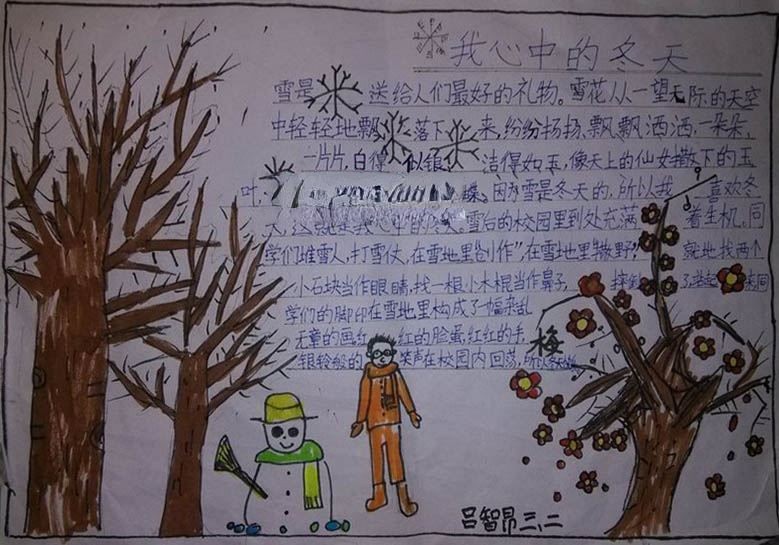 我心中的冬天
雪是 送给人们最好的礼物。雪花从一望无际的天空
中轻轻地飘 落下 来,纷纷扬扬,飘飘洒洒,一朵朵,
一片片,白得 似银, 洁得如玉,像天上的仙女撒下的玉
叶, 蝶。因为雪是冬天的,所以我 喜欢冬
天,这就是我心中的冬天。雪台的校园里到处充满 着生机。同
学们堆雪人,打雪仗,在雪地里"创作",在雪地里"撒野"。 就地找两个
小石块当作眼睛,找一根小木棍当作鼻子, 摔倒 了,站起 来,同
学们的脚印在雪地里构成了一幅杂乱
无章的画,红 红的脸蛋,红红的手,
银铃般的 笑声在校园内回荡,
梅
吕智昂 三、二